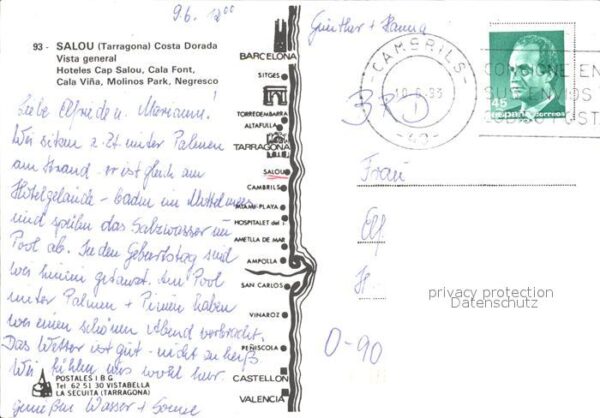 9.6. 12⁰⁰
Günther + Hanna
93 - SALOU (Tarragona) Costa Dorada
Vista general
Hoteles Cap Salou, Cala Font,
Cala Viña, Molinos Park, Negresco
Liebe Elfriede u. Mariann!
Wir sitzen z. Zt unter Palmen
am Strand - er ist gleich am
Hotelgelände - baden im Mittelmeer
und spülen das Salzwasser im
Pool ab. In den Geburtstag sind
wir hinein getanzt. Am Pool
unter Palmen + Pinien haben
wir einen schönen Abend verbracht.
Das Wetter ist gut - nicht zu heiß
Wir fühlen uns wohl hier.
genießen Wasser + Sonne
BARCELONA
SITGES
TORREDEMBARRA
ALTAFULLA
TARRAGONA
SALOU
CAMBRILS
MIAMI-PLAYA
HOSPITALET del I
AMETLLA DE MAR
AMPOLLA
SAN CARLOS
VINAROZ
PEÑISCOLA
CASTELLON
VALENCIA
POSTALES I B G
Tel 62 51 30 VISTABELLA
LA SECUITA (TARRAGONA)
-CAMBRILS-
10.6.93
-43-
CONSIGNE EN
SUS ENVIOS
CODIGO POSTA
45
españa correos
BRD
Frau
Elf
H
privacy protection
Datenschutz
0-90